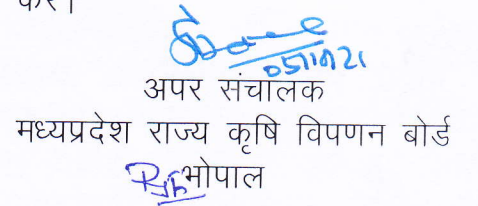 करें।
05/11/21
अपर संचालक
मध्यप्रदेश राज्य कृषि विपणन बोर्ड
भोपाल